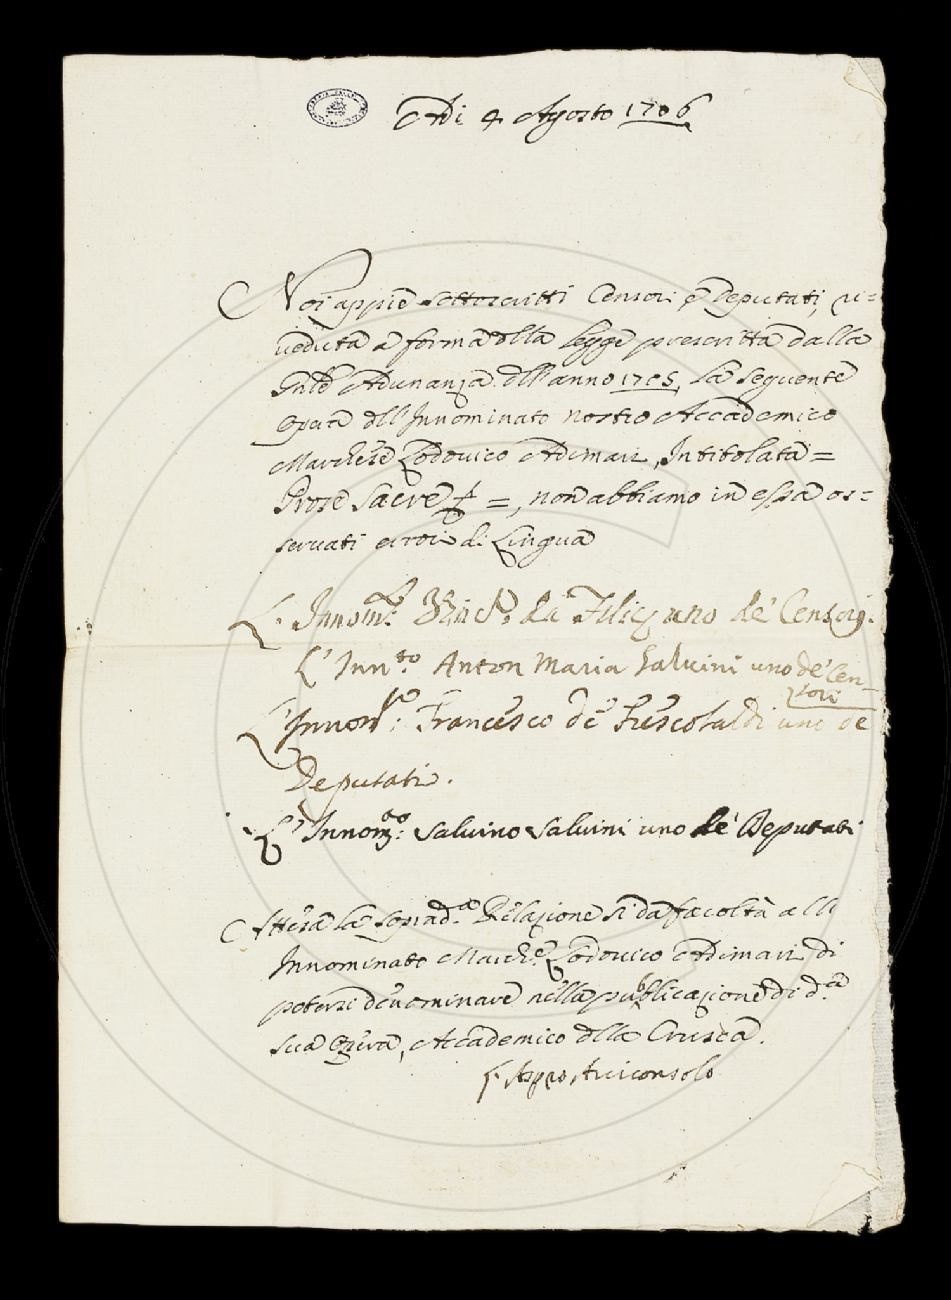 Adi 4 Agosto 1706
Noi appiè sottoscritti Censori, e Deputati, ri=
veduta a forma della legge prescritta dalla
Adunanza dell'anno 1705, la seguente
Opera dell'Innominato nostro Accademico
Marchese Lodovico Adimari, Intitolata=
Prose Sacre =, non abbiamo in essa os=
servati errori di Lingua
L'Innom.to da Filicaia uno de' Censori.
L'Inn.to Anton Maria Salvini uno de' Cen-
sori
L'Innom.to: Francesco de' Frescobaldi uno de
Deputati.
L'Innom.to: Salvino Salvini uno de' Deputati
Attesa la soprad.a Relazione si dà facoltà all
Innominato March.e Lodovico Adimari di
potersi denominare nella pubblicazione di d.a
sua Opera, Accademico della Crusca.
L'Aspro Arciconsolo